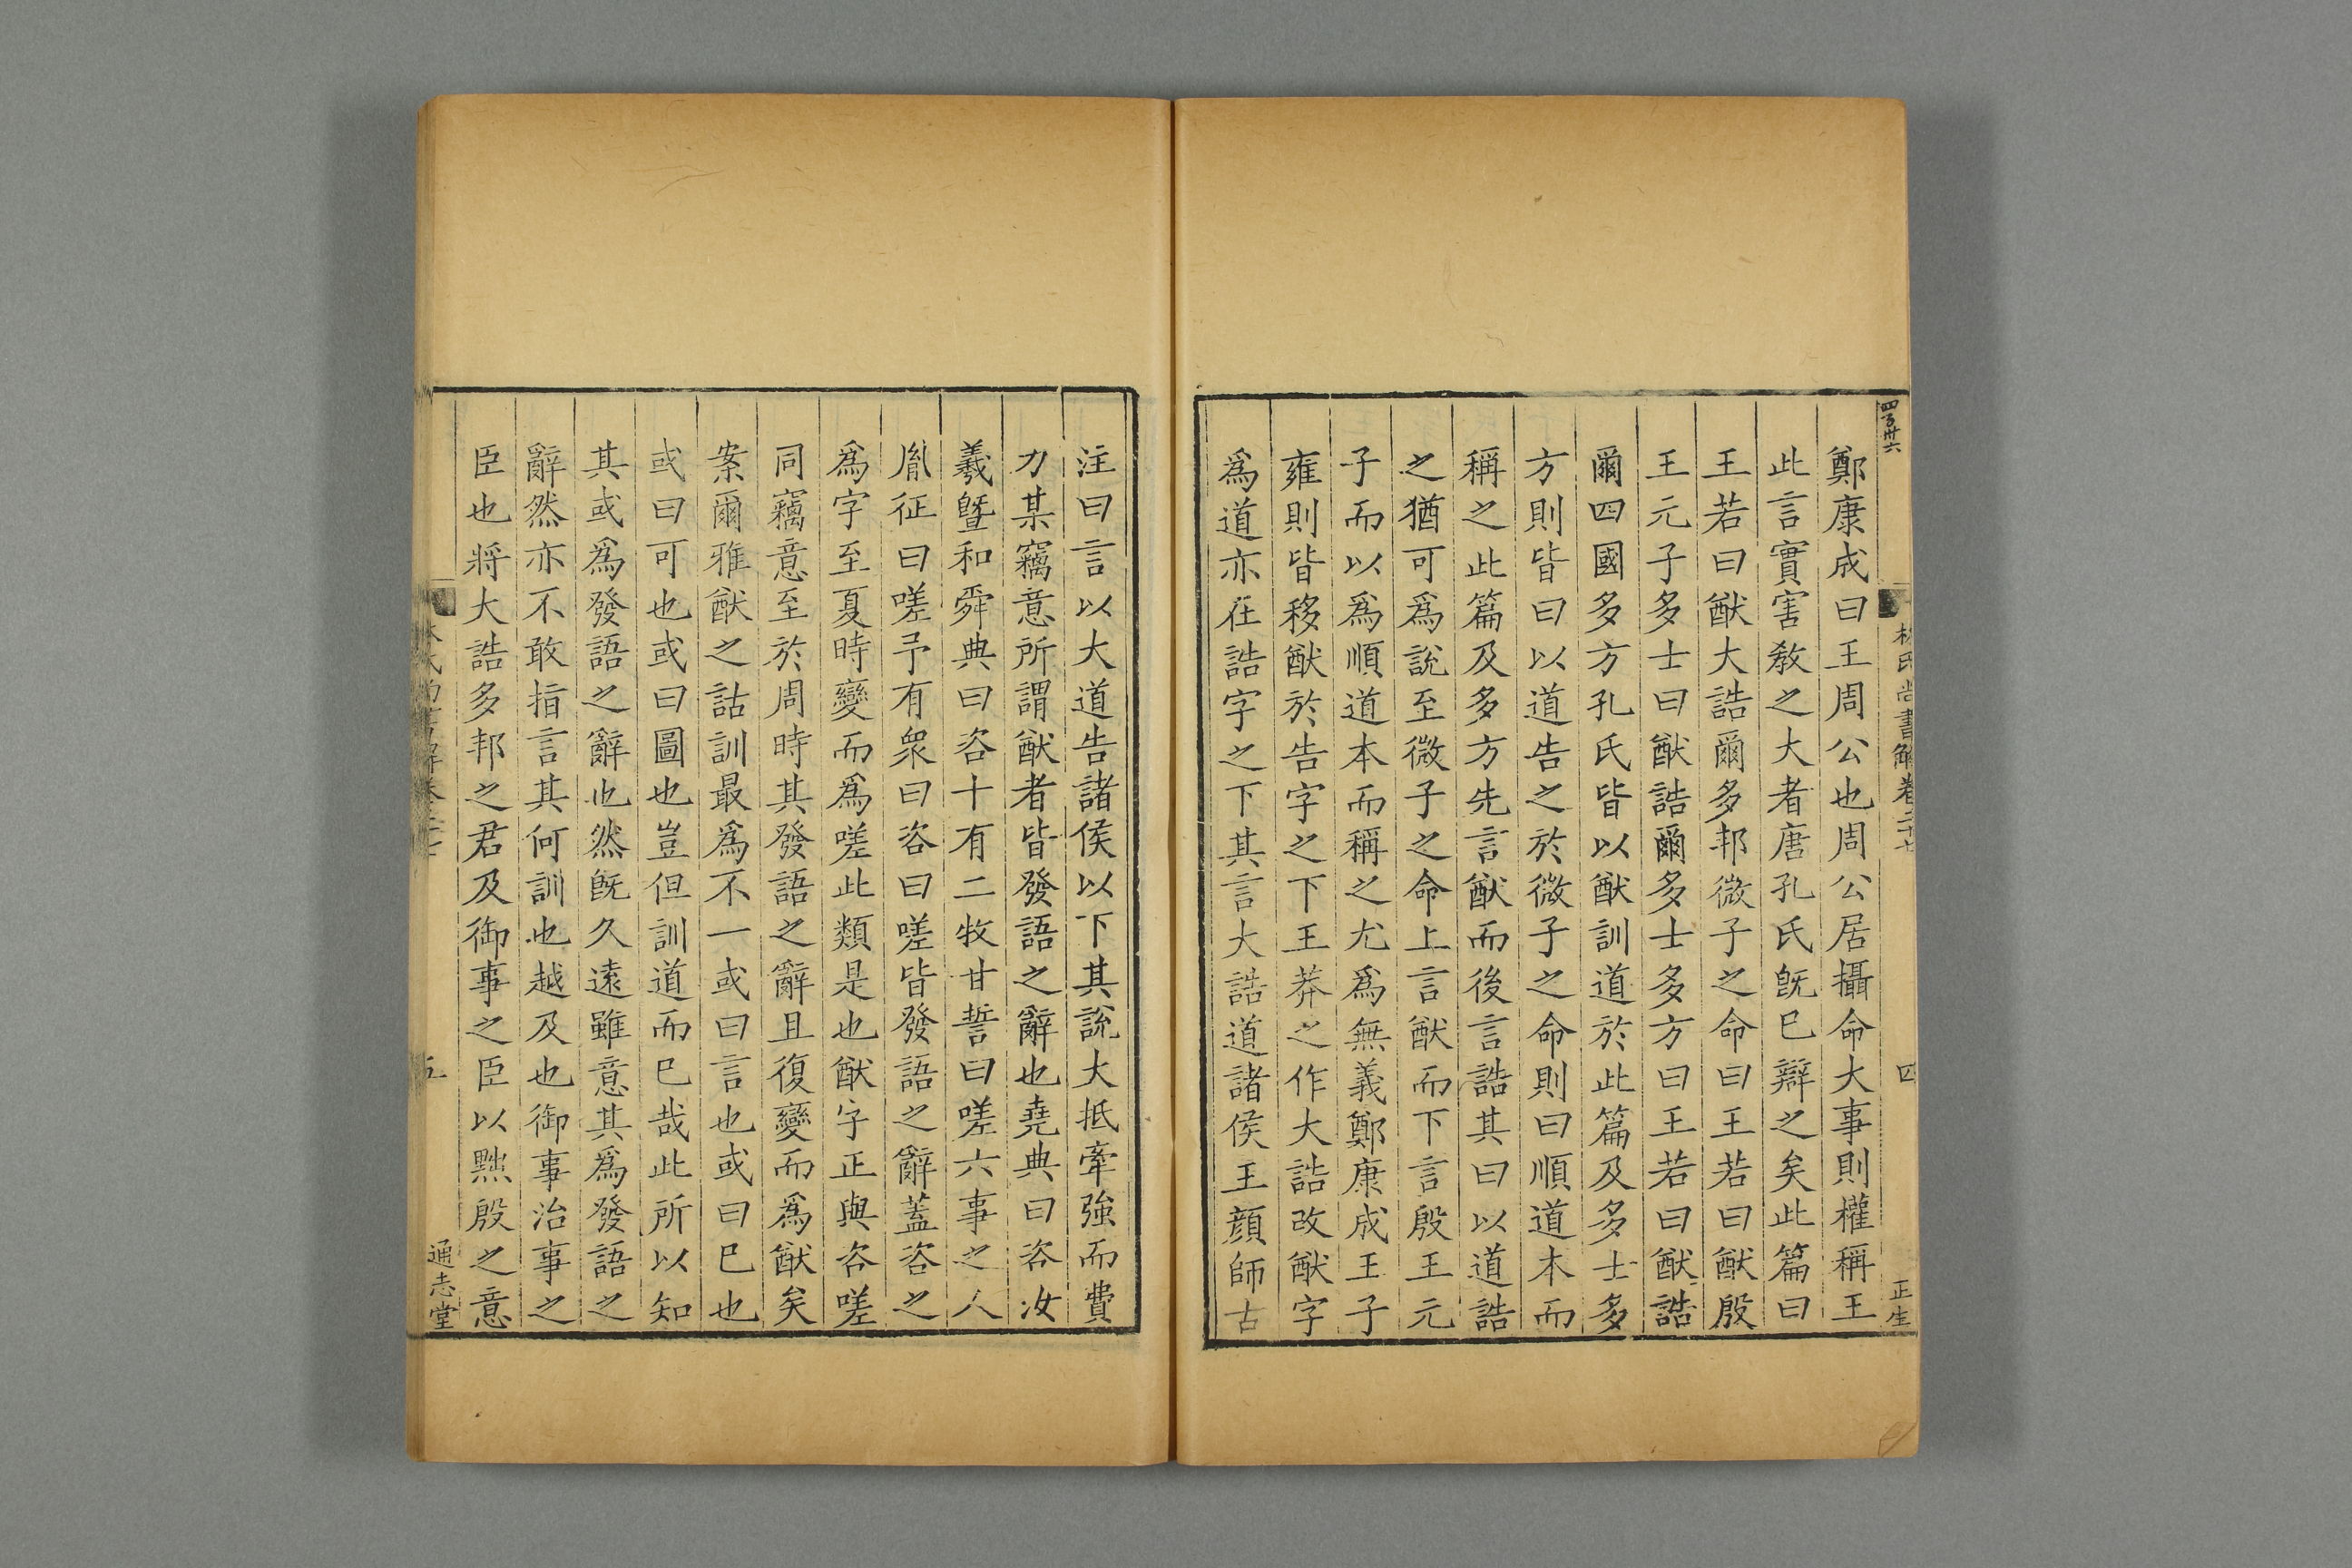 四百卅六
林氏尚書解卷二十七
四
正生
鄭康成曰王周公也周公居攝命大事則權稱王
此言實害敎之大者唐孔氏旣巳辯之矣此篇曰
王若曰猷大誥爾多邦微子之命曰王若曰猷殷
王元子多士曰猷誥爾多士多方曰王若曰猷誥
爾四國多方孔氏皆以猷訓道於此篇及多士多
方則皆曰以道告之於微子之命則曰順道本而
稱之此篇及多方先言猷而後言誥其曰以道誥
之猶可爲說至微子之命上言猷而下言殷王元
子而以爲順道本而稱之尤爲無義鄭康成王子
雍則皆移猷於告字之下王莽之作大誥改猷字
爲道亦在誥字之下其言大誥道諸侯王顔師古
注曰言以大道告諸侯以下其說大抵牽強而費
力某竊意所謂猷者皆發語之辭也堯典曰咨汝
羲曁和舜典曰咨十有二牧甘誓曰嗟六事之人
胤征曰嗟予有衆曰咨曰嗟皆發語之辭蓋咨之
爲字至夏時變而爲嗟此類是也猷字正與咨嗟
同竊意至於周時其發語之辭且復變而爲猷矣
案爾雅猷之詁訓最爲不一或曰言也或曰巳也
或曰可也或曰圖也豈但訓道而巳哉此所以知
其或爲發語之辭也然旣久遠雖意其爲發語之
辭然亦不敢指言其何訓也越及也御事治事之
臣也將大誥多邦之君及御事之臣以黜殷之意
五
通志堂